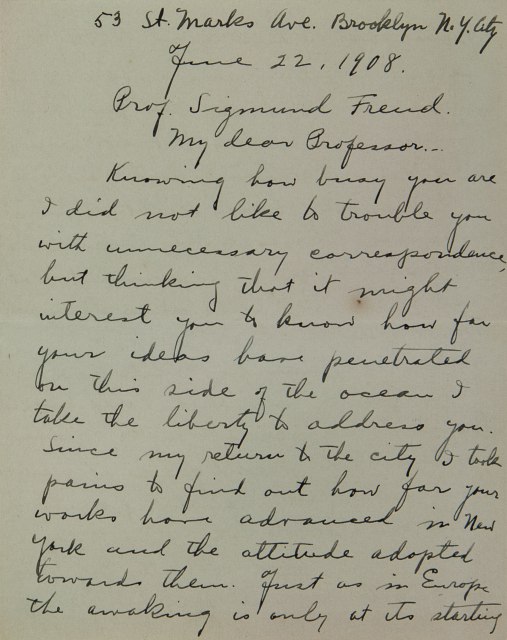 53 St. Marks Ave. Brooklyn N.Y. City
June 22, 1908.
Prof. Sigmund Freud.
My dear Professor...
Knowing how busy you are
I did not like to trouble you
with unnecessary correspondence,
but thinking that it might
interest you to know how far
your ideas have penetrated
on this side of the ocean I
take the liberty to address you.
Since my return to the city I took
pains to find out how far your
works have advanced in New
York and the attitude adopted
towards them. Just as in Europe
the awaking is only at its starting